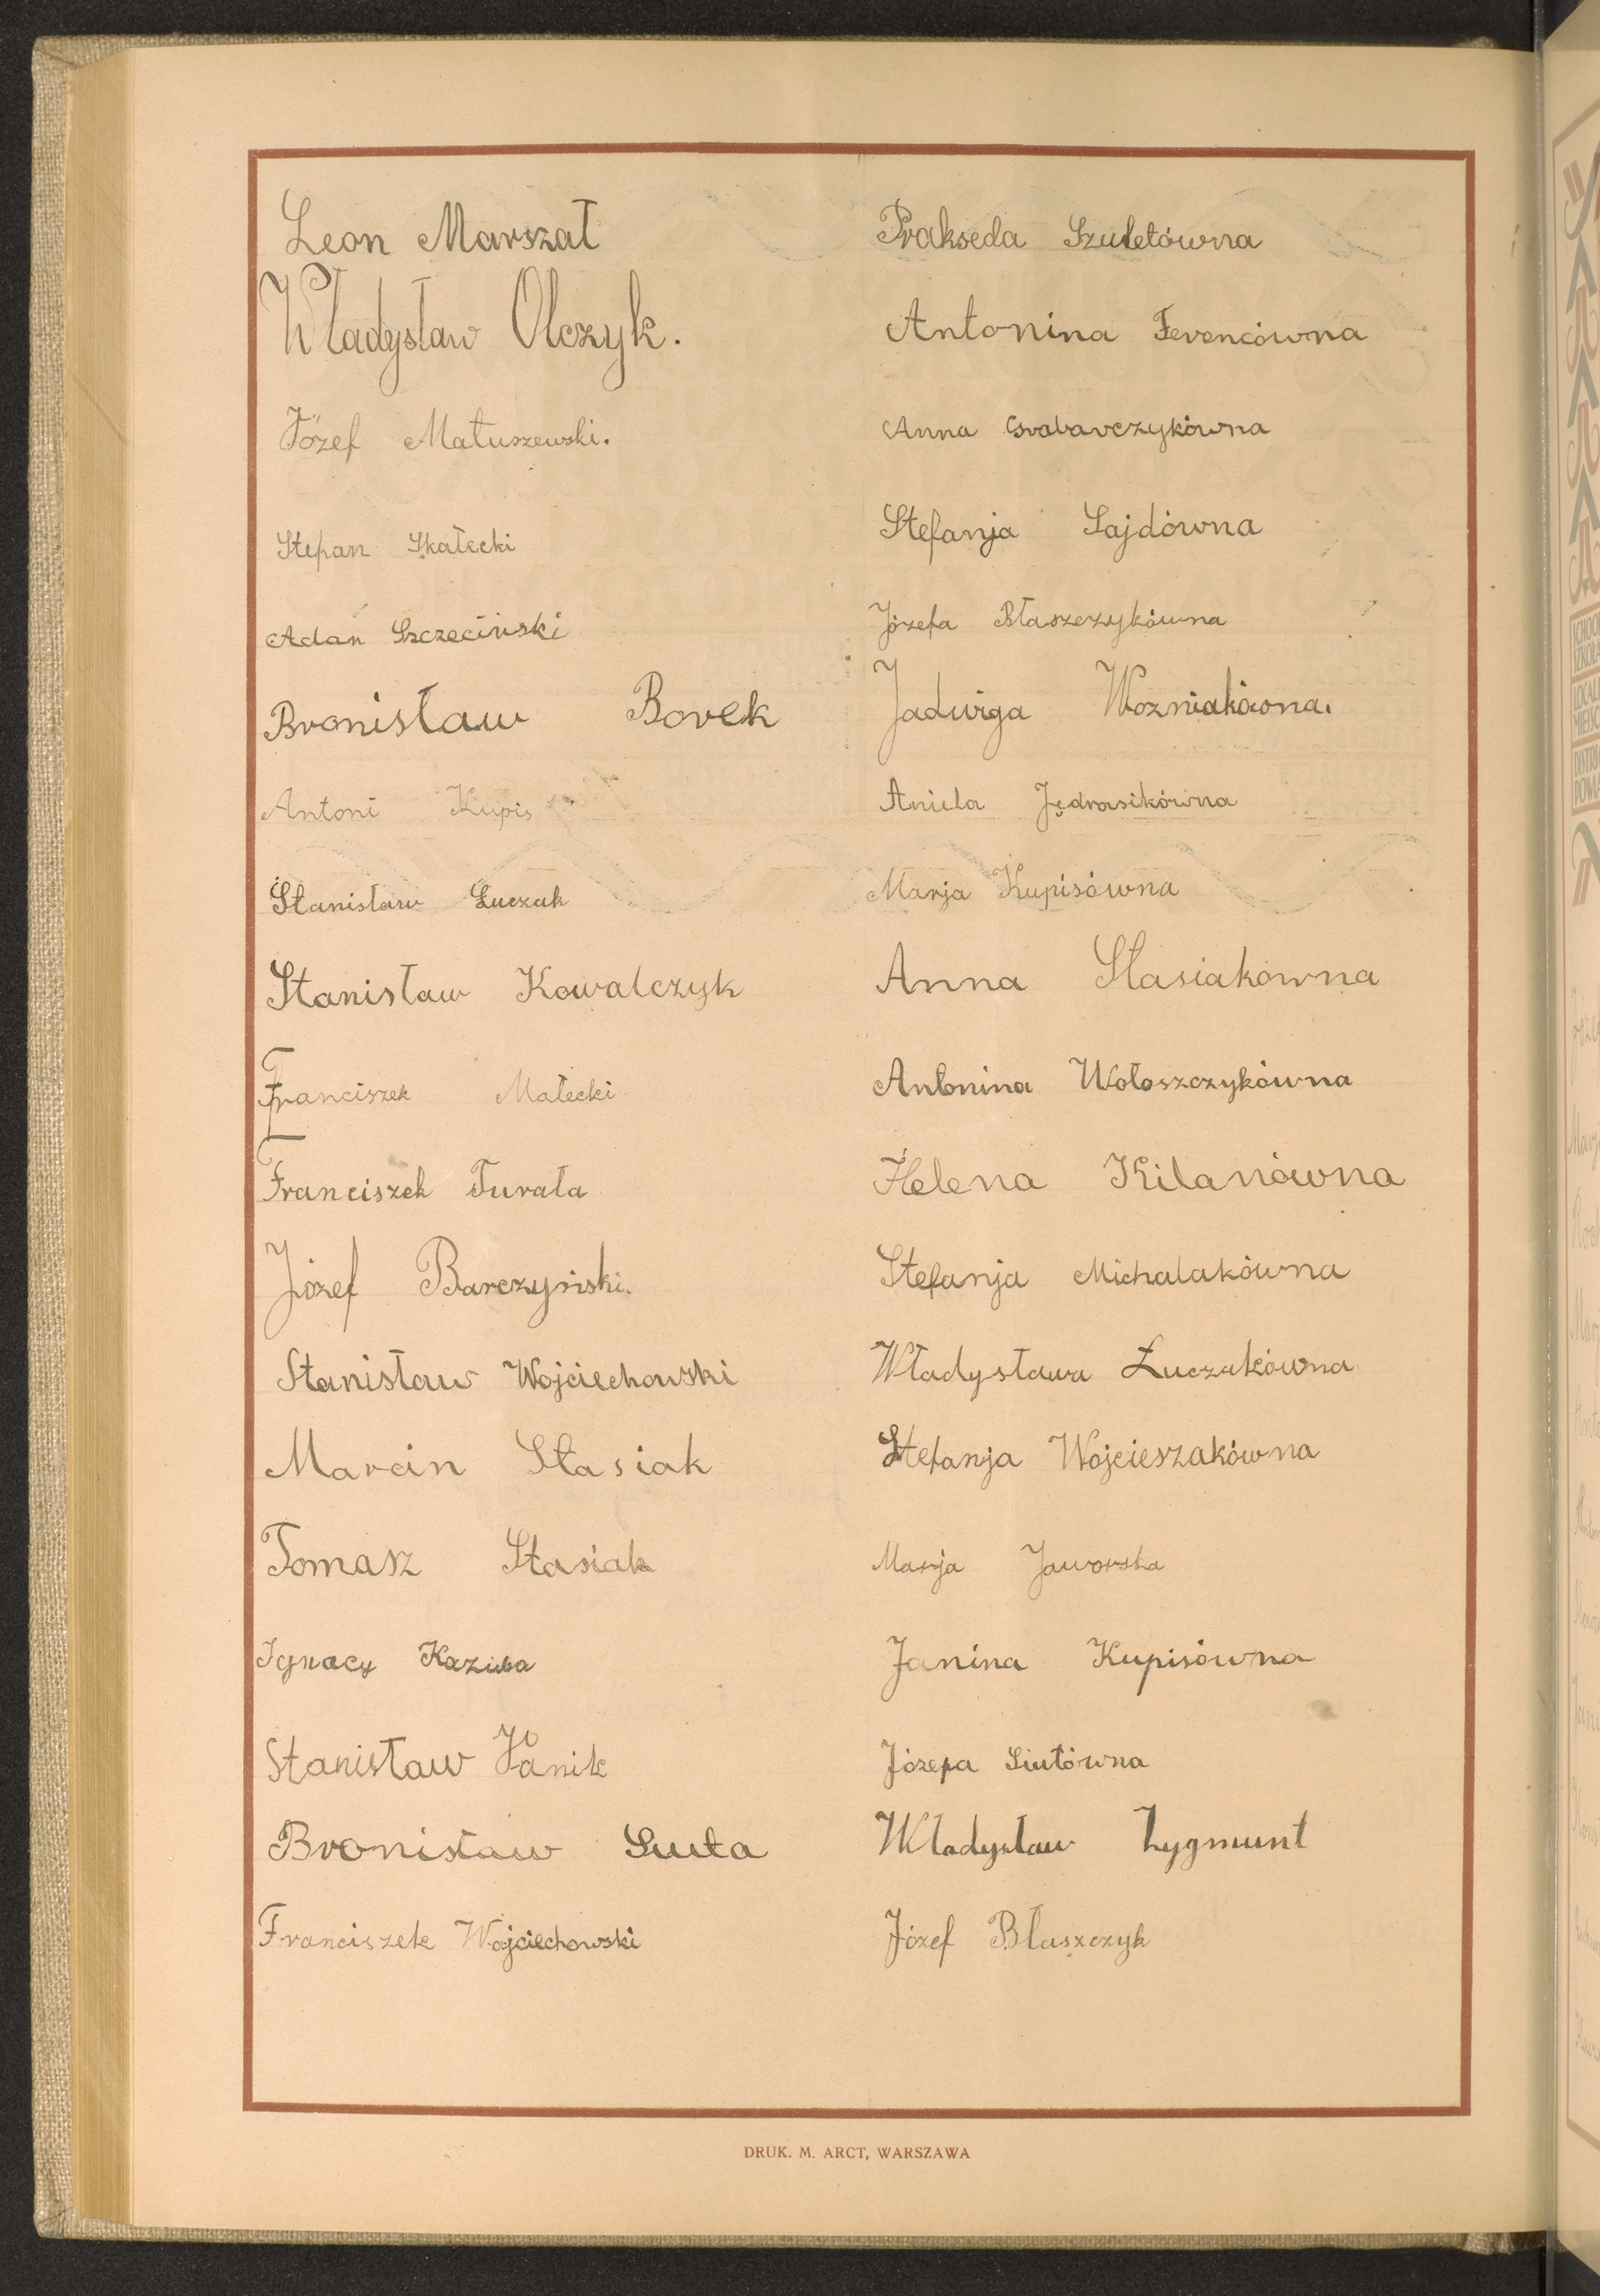 Leon Marszał
Władysław Olczyk.
Józef Matuszewski.
Stefan Skałecki
Adan Szczeciński
Bronisław Borek
Antoni Kupis
Stanisław Łuczak
Stanisław Kowalczyk
Franciszek Małecki
Franciszek Turała
Józef Barczyński.
Stanisław Wojciechowski
Marcin Stasiak
Tomasz Stasiak
Ignacy Kaziuba
Stanisław Janik
Bronisław Siuta
Franciszek Wojciechowski
Prakseda Szuletówna
Antonina Ferencówna
Anna Grabarczykówna
Stefanja Sajdówna
Józefa Błaszczykówna
Jadwiga Wozniakówna.
Aniela Jędrasikówna
Marja Kupisówna
Anna Stasiakówna
Antonina Wołoszczykówna
Helena Kilanówna
Stefanja Michalakówna
Władysława Łuczakówna
Stefanja Wojcieszakówna
Marja Jaworska
Janina Kupisówna
Józefa Siutówna
Władysław Zygmunt
Józef Błaszczyk
DRUK. M. ARCT, WARSZAWA